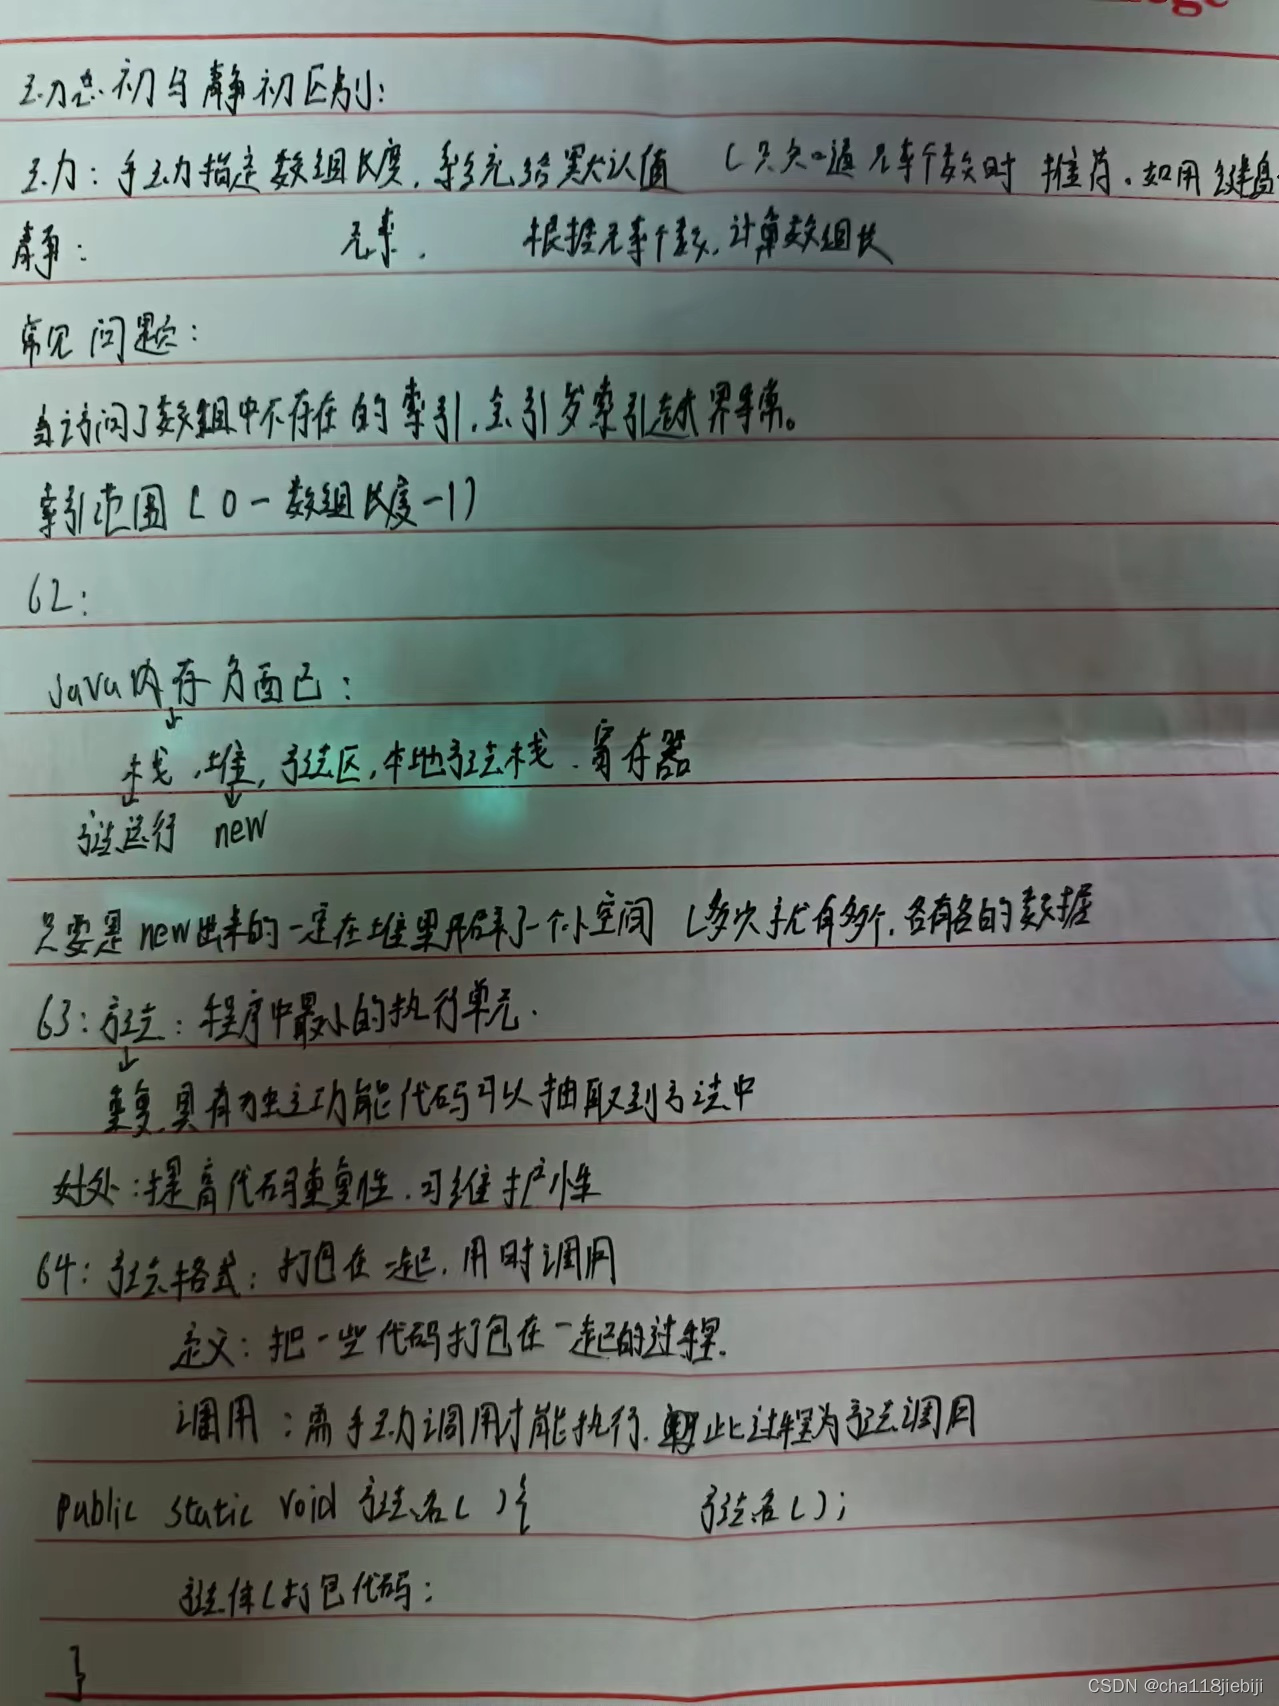 动态初与静初区别:
动:手动指定数组长度,系统给默认值 (只知道元素个数时 推荐。如用键盘
静: 元素. 根据元素个数,计算数组长
常见问题:
当访问了数组中不存在的索引,会引发索引越界异常。
索引范围(0-数组长度-1)
62:
Java内存分配:
栈,堆,方法区,本地方法栈.寄存器
方法运行 new
只要是new出来的一定在堆里开辟了一个小空间 (多少就有多个,各有各的数据
63:方法:程序中最小的执行单元.
重复具有独立功能代码可以抽取到方法中
好处:提高代码重复性.可维护性
64:方法格式:打包在一起.用时调用
定义:把一些代码打包在一起的过程.
调用:需手动调用才能执行. 此过程为方法调用
public static void 方法名( ){ 方法名();
方法体(打包代码:
}
CSDN @cha118jiebiji